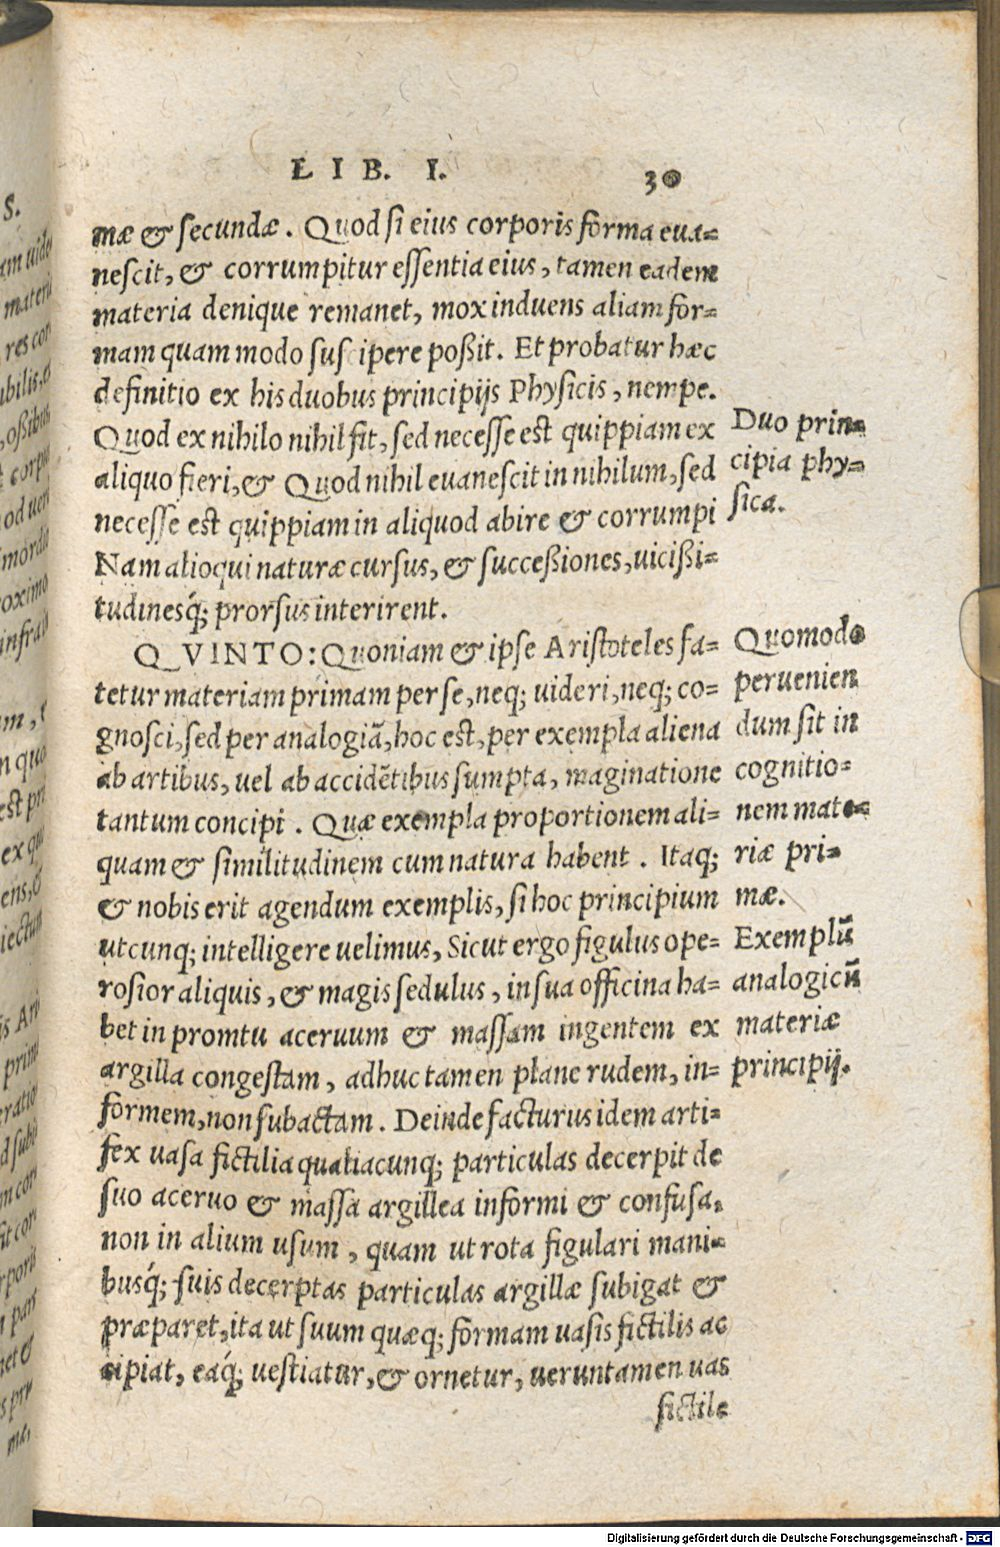 LIB. I. 30
mæ & secundæ. Quod si eius corporis forma eua=
nescit, & corrumpitur essentia eius, tamen eadem
materia denique remanet, mox induens aliam for=
mam quam modo suscipere poßit. Et probatur hæc
definitio ex his duobus principijs Physicis, nempe.
Quod ex nihilo nihil fit, sed necesse est quippiam ex
aliquo fieri, & Quod nihil euanescit in nihilum, sed
necesse est quippiam in aliquod abire & corrumpi
Nam alioqui naturæ cursus, & succeßiones, uicißi=
tudinesq́; prorsus interirent.
Duo prin=
cipia phy=
sica.
QVINTO: Quoniam & ipse Aristoteles fa=
tetur materiam primam per se, neq; uideri, neq; co=
gnosci, sed per analogiã, hoc est, per exempla aliena
ab artibus, uel ab accidẽtibus sumpta, maginatione
tantum concipi. Quæ exempla proportionem ali=
quam & similitudinem cum natura habent. Itaq;
& nobis erit agendum exemplis, si hoc principium
utcunq; intelligere uelimus, Sicut ergo figulus ope=
rosior aliquis, & magis sedulus, in sua officina ha=
bet in promtu aceruum & massam ingentem ex
argilla congestam, adhuc tamen plane rudem, in=
formem, non subactam. Deinde facturus idem arti=
fex uasa fictilia qualiacunq; particulas decerpit de
suo aceruo & massa argillea informi & confusa,
non in alium usum, quam ut rota figulari mani=
busq́; suis decerptas particulas argillæ subigat &
præparet, ita ut suum quæq; formam uasis fictilis ac
cipiat, eaq́; uestiatur, & ornetur, ueruntamen uas
fictile
Quomodo
peruenien
dum sit in
cognitio=
nem mate=
riæ pri=
mæ.
Exemplũ
analogicũ
materiæ
principij.
S.
Digitalisierung gefördert durch die Deutsche Forschungsgemeinschaft - DFG